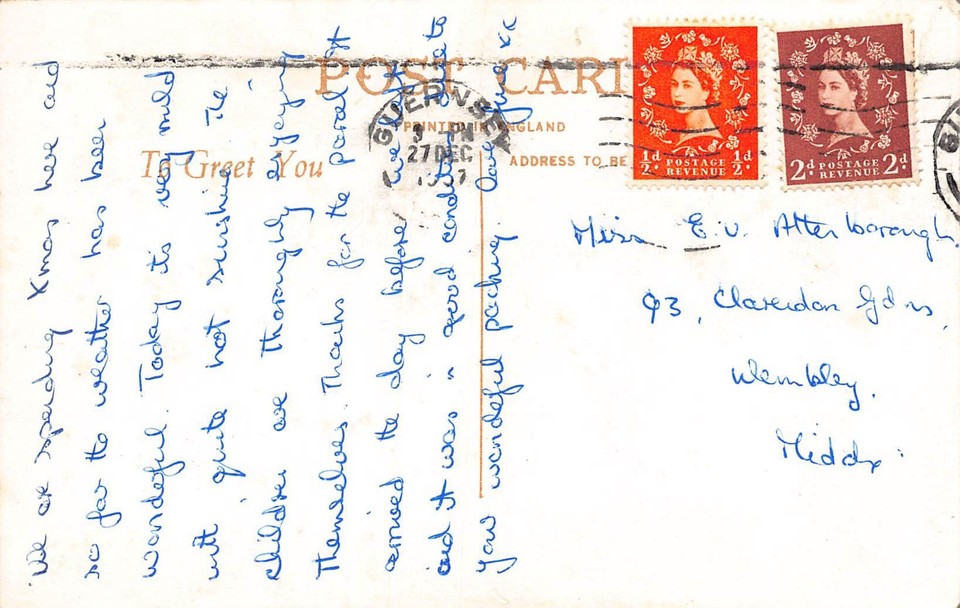 POST CARD
PRINTED IN ENGLAND
To Greet You
ADDRESS TO BE
GUERNSEY
27 DEC
1957
½d POSTAGE REVENUE ½d
2d POSTAGE REVENUE 2d
We are spending Xmas here and
so far the weather has been
wonderful. Today its very mild
with quite hot sunshine. The
children are thoroughly enjoying
themselves. Thanks for the parcel it
arrived the day before we left
and it was in good condition due to
your wonderful packing. Love June xx
Miss E. V. Attenborough,
93, Clarendon Gdns,
Wembley,
Middx: